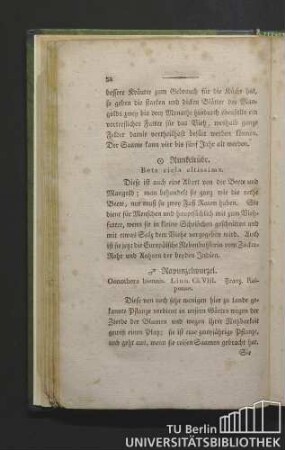 28
bessere Kräuter zum Gebrauch für die Küche hat,
so geben die starken und dicken Blätter des Man-
golds zwey bis drey Monathe hindurch ebenfalls ein
vortreffliches Futter für das Vieh, weshalb ganze
Felder damit vortheilhaft besäet werden können.
Der Saame kann vier bis fünf Jahr alt werden.
⊙ Runkelrübe.
Beta cicla altissima.
Diese ist auch eine Abart von der Beete und
Mangold; man behandelt sie ganz wie die rothe
Beete, nur muß sie zwey Fuß Raum haben. Sie
dient für Menschen und hauptsächlich mit zum Vieh-
futter, wenn sie in kleine Scheibchen geschnitten und
mit etwas Salz dem Viehe vorgegeben wird. Auch
ist sie jetzt die Nebenbuhlerin vom Zucker-
Rohr und der beyden Indien.
♂ Rapunzelwurzel.
Oenothera biennis. Linn. Cl. VIII. Franz. Rai-
ponce.
Diese von noch sehr wenigen hier zu Lande ge-
kannte Pflanze verdient in unsern Gärten wegen der
Zierde der Blumen und wegen ihrer Nutzbarkeit
einen Platz; sie ist eine zweyjährige Pflanze,
und geht aus, wenn sie reifen Saamen gebracht hat.
Sie
TU Berlin
UNIVERSITÄTSBIBLIOTHEK